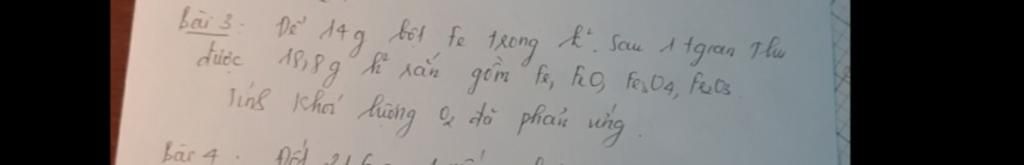 Bài 3. Để 14g bột Fe trong k². Sau 1 tgian Thu
được 18,8g h² rắn gồm Fe, FeO, Fe3O4, Fe2O3.
Tính Khối lượng O2 đã phản ứng.
Bài 4. Đốt